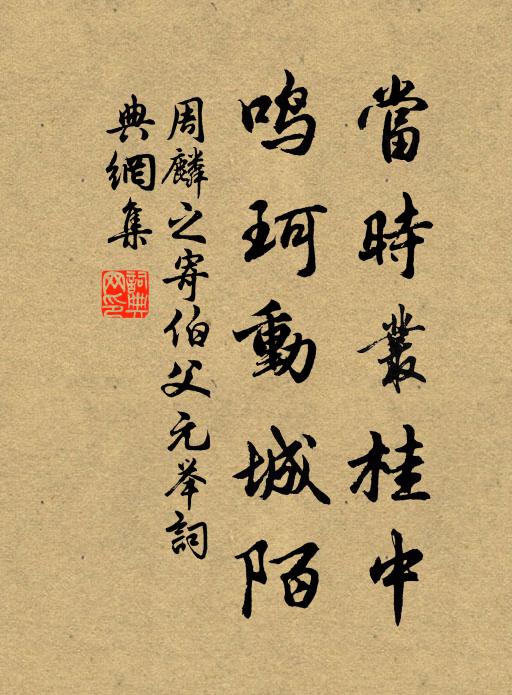 當時叢桂中
鸣珂動城陌
周麟之寄伯父元举詞
典網集
詞典网印